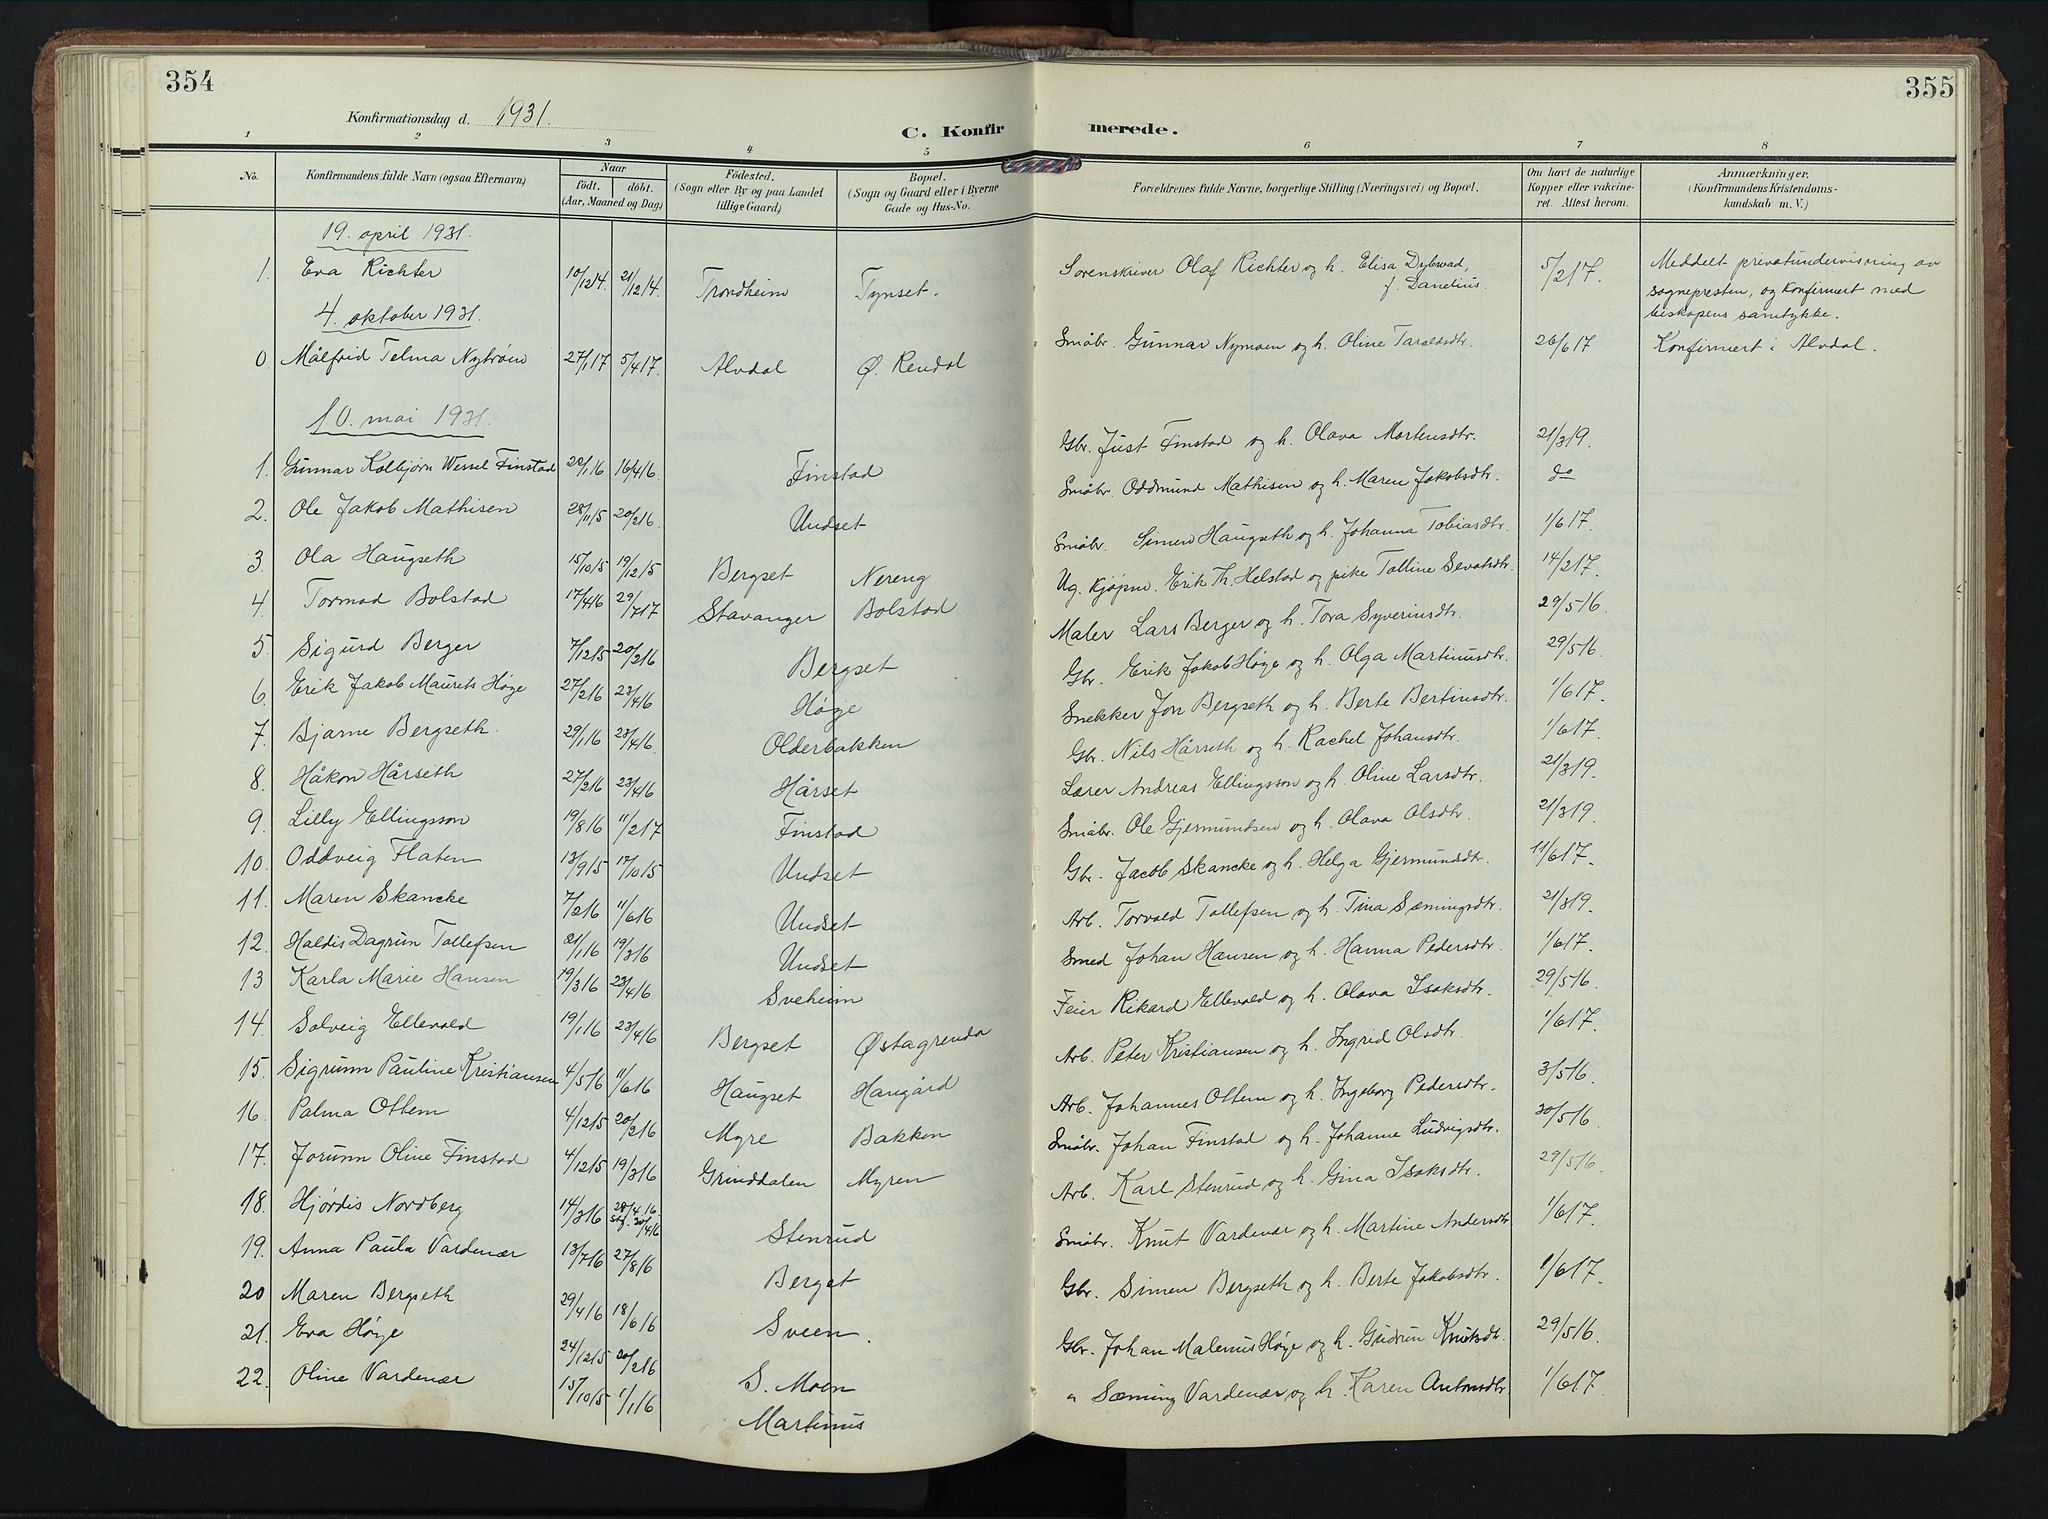 354
Konfirmationsdag d. 1931.
C. Konfirmerede.
355
1 2 3 4 5 6 7 8
No. Konfirmandens fulde Navn (ogsaa Efternavn) Naar født. døbt. (Aar, Maaned og Dag) Fødested. (Sogn eller By og paa Landet tillige Gaard) Bopæl. (Sogn og Gaard eller i Byerne Gade og Hus-No. Forældrenes fulde Navne, borgerlige Stilling (Næringsvei) og Bopæl. Om havt de naturlige Kopper eller vakcineret. Attest herom. Anmærkninger. (Konfirmandens Kristendomskundskab m. V.)
19. april 1931.
1. Eva Richter 10/12 14. 21/12 14. Trondheim Tynset. Sorenskriver Olaf Richter og h. Elisa Dybwad, f. Danelius. 5/2 17. Meddelt privatundervisning av
sognepresten, og konfirmert med
biskopens samtykke.
4. oktober 1931.
0. Målfrid Telma Nytrøen 27/1 17 5/4 17. Alvdal Ø. Rendal Småbr. Gunnar Nymoen og h. Oline Taraldsdtr. 26/6 17 Konfirmert i Alvdal.
10. mai 1931.
1. Gunnar Kolbjørn Wessel Finstad 20/1 16 16/4 16. Finstad Gbr. Just Finstad og h. Olava Mortensdtr. 21/3 19.
2. Ole Jakob Mathisen 28/11 15 20/2 16. Undset Småbr. Oddmund Mathisen og h. Maren Jakobsdtr. do
3. Ola Haugseth 15/10 15 19/12 15 Bergset Nereng Småbr. Simen Haugseth og h. Johanna Tobiasdtr. 1/6 17.
4. Tormod Bolstad 17/4 16 29/7 17 Stavanger Bolstad Ug. kjøpm. Erik Th. Helstad og pike Talline Sevatsdtr. 14/2 17.
5. Sigurd Berger 7/12 15 20/2 16 Bergset Maler Lars Berger og h. Tora Syverinsdtr. 29/5 16.
6. Erik Jakob Maurits Høye 27/2 16 23/4 16 Høye Gbr. Erik Jakob Høye og h. Olga Martinusdtr. 29/5 16.
7. Bjarne Bergseth. 29/1 16 23/4 16. Olderbakken Snekker Jon Bergseth og h. Berte Bertinsdtr. 1/6 17.
8. Håkon Hårseth 27/2 16 23/4 16 Hårset Gbr. Nils Hårseth og h. Rachel Johansdtr. 1/6 17.
9. Lilly Ellingsson 19/8 16 11/2 17 Finstad Lærer Andreas Ellingsson og h. Oline Larsdtr. 21/3 19.
10. Oddveig Flaten 13/9 15 17/10 15 Undset Småbr. Ole Gjermundsen og h. Olava Olsdtr. 21/3 19.
11. Maren Skancke 7/2 16 11/6 16 Undset Gbr. Jacob Skancke og h. Helga Gjermundsdtr. 11/6 17.
12. Haldis Dagrun Tollefsen 21/1 16 19/3 16 Undset Arb. Torvald Tollefsen og h. Tina Sæmingsdtr. 21/3 19.
13 Karla Marie Hansen 19/3 16 23/4 16 Sveheim Smed Johan Hansen og h. Hanna Pedersdtr. 1/6 17.
14. Solveig Ellevold 19/1 16 23/4 16 Bergset Østagrenda Feier Rikard Ellevold og h. Olava Isaksdtr. 29/5 16.
15. Sigrunn Pauline Kristiansen 4/5 16 11/6 16 Haugset Haugård Arb. Peter Kristiansen og h. Ingrid Olsdtr. 1/6 17.
16. Palma Ottem 4/12 15 20/2 16 Myre Bakken Arb. Johannes Ottem og h. Ingeborg Pedersdtr. 3/5 16.
17. Jorunn Oline Finstad 4/12 15 19/3 16 Grinddalen Myren Småbr. Johan Finstad og h. Johanne Ludvigsdtr. 30/5 16.
18. Hjørdis Nordberg 14/3 16 28/4 16. 30/4 16 Stenrud Arb. Karl Stenrud og h. Gina Isaksdtr. 29/5 16.
19. Anna Paula Vardenær 13/7 16 27/8 16 Berget Småbr. Knut Vardenær og h. Martine Andersdtr. 1/6 17.
20 Maren Bergseth 29/4 16 18/6 16 Sveen. Gbr. Simen Bergseth og h. Berte Jakobsdtr. 1/6 17.
21. Eva Høye 24/12 15 20/2 16 S. Moen Gbr. Johan Malenius Høye og h. Gudrun Knutsdtr. 29/5 16.
22. Oline Vardenær 15/10 15 1/1 16 Martinus " Sæming Vardenær og h. Karen Antonsdtr 1/6 17.